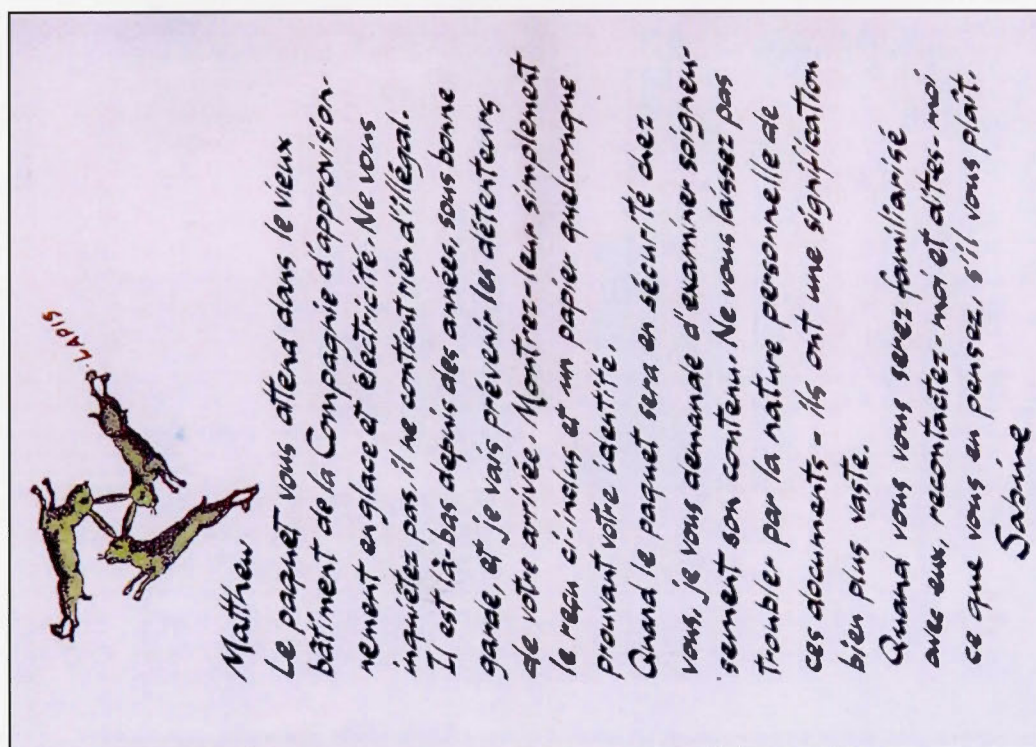 LAPIS
Matthew
Le paquet vous attend dans le vieux
bâtiment de la Compagnie d'approvision-
nement en glace et électricité. Ne vous
inquiétez pas, il ne contient rien d'illégal.
Il est là-bas depuis des années, sous bonne
garde, et je vais prévenir les détenteurs
de votre arrivée. Montrez-leur simplement
le reçu ci-inclus et un papier quelconque
prouvant votre identité.
Quand le paquet sera en sécurité chez
vous, je vous demande d'examiner soigneu-
sement son contenu. Ne vous laissez pas
troubler par la nature personnelle de
ces documents - ils ont une signification
bien plus vaste.
Quand vous vous serez familiarisé
avec eux, recontactez-moi et dites-moi
ce que vous en pensez, s'il vous plaît.
Sabine